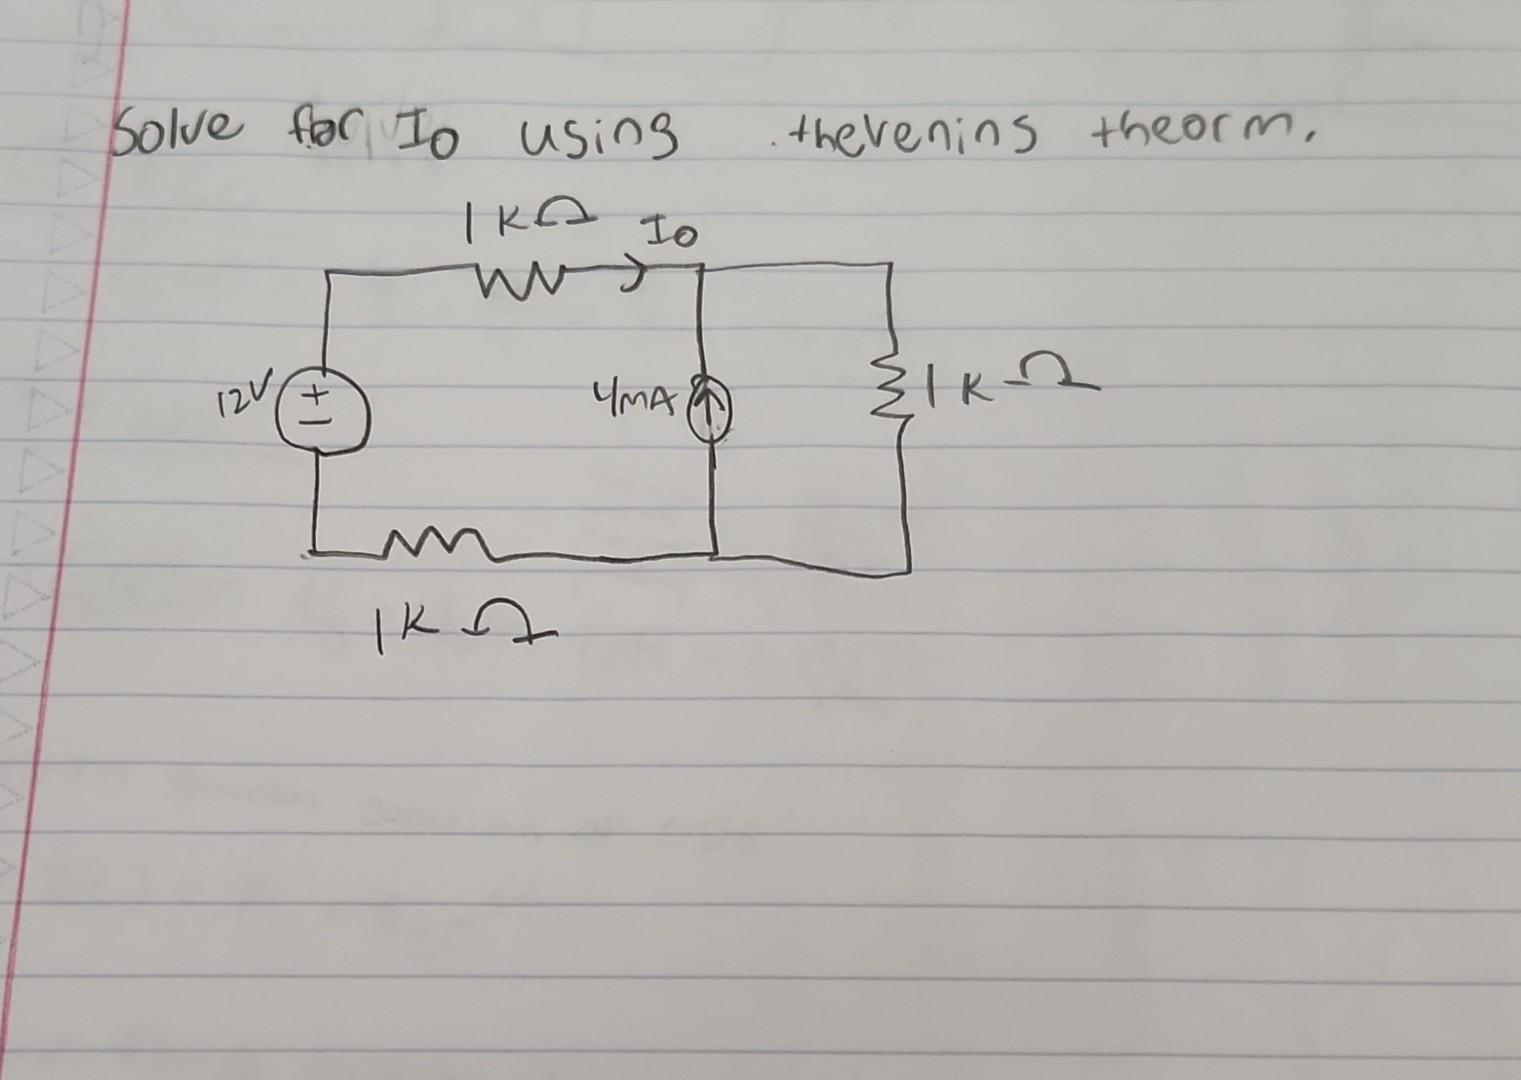 Solve for Io using thevenins theorm.
1 KΩ Io
12V + − 4mA 1 K Ω
1K Ω